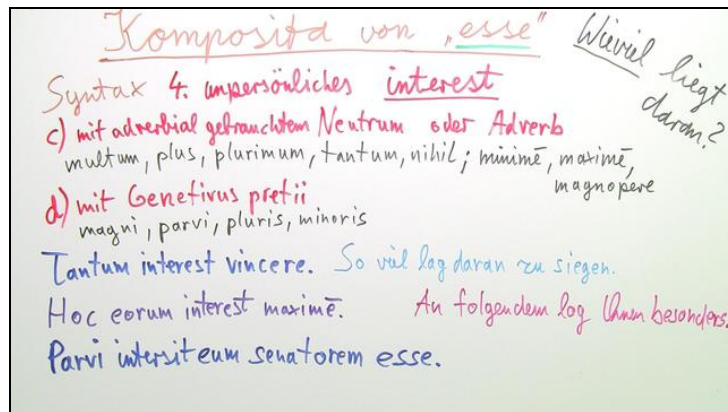 Komposita von „esse"
Wieviel liegt
daran?
Syntax 4. unpersönliches interest
c) mit adverbial gebrauchtem Neutrum oder Adverb
multum, plus, plurimum, tantum, nihil; minimē, maximē,
magnopere
d) mit Genetivus pretii
magni, parvi, pluris, minoris
Tantum interest vincere. So viel lag daran zu siegen.
Hoc eorum interest maximē. An folgendem log Ihnen besonders.
Parvi intersit eum senatorem esse.